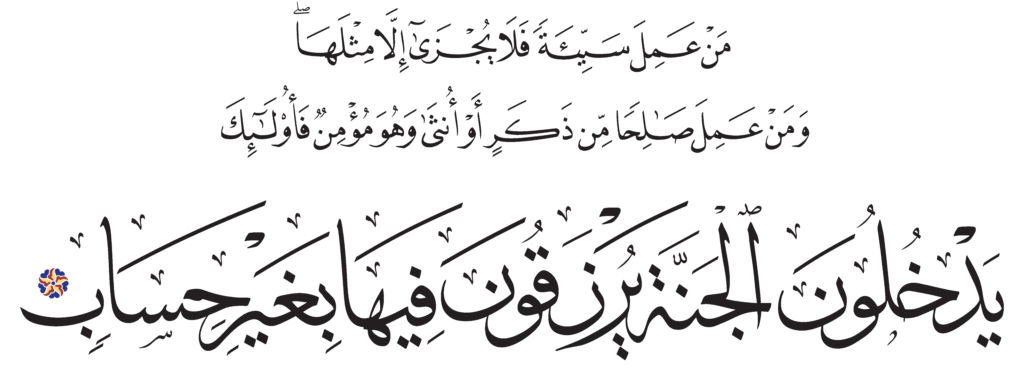 مَنْ عَمِلَ سَيِّئَةً فَلَا يُجْزَىٰٓ إِلَّا مِثْلَهَا ۖ
وَمَنْ عَمِلَ صَٰلِحًا مِّن ذَكَرٍ أَوْ أُنثَىٰ وَهُوَ مُؤْمِنٌ فَأُو۟لَٰٓئِكَ
يَدْخُلُونَ ٱلْجَنَّةَ يُرْزَقُونَ فِيهَا بِغَيْرِ حِسَابٍ